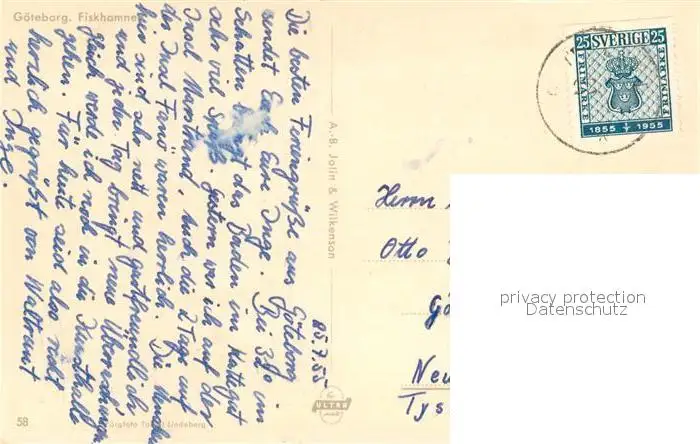 Göteborg. Fiskhamnen
25 SVERIGE 25
FRIMÄRKE
FRIMÄRKE
1855 1955
25.7.55
Die besten Feriengrüße aus Göteborg
sendet Euch Eure Inge. Bei 30° im
Schatten macht das Baden im Kattegat
sehr viel Spaß. Gestern war ich auf der
Insel Marstrand. Auch die 2 Tage auf
der Insel Fanö waren herrlich. Die
hier sind sehr nett und gastfreundlich
und jeder Tag bringt neue Überraschungen.
Gleich werde ich noch in die Kunsthalle
gehen. Für heute seid also recht
herzlich gegrüßt von Waltraut
und Inge.
A.-B. Jolin & Wilkenson
Herrn
Otto
privacy protection
Datenschutz
Neu
Tys
ULTRA
58
Lindeberg